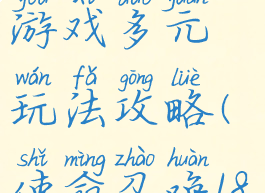 yóu xì duō yuán
游戏多元
wán fǎ gōng lüè
玩法攻略(
shǐ mìng zhào huàn
使命召唤18